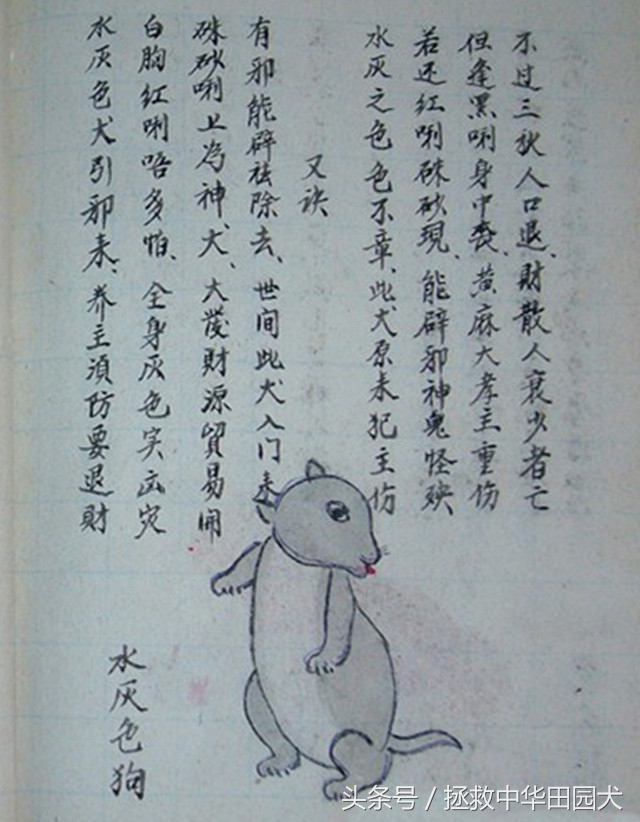 不过三秋人口退、財散人衰少者亡
但逢黑唎身中喪、黄麻大孝主重伤
若还红唎硃砂現、能辟邪神鬼怪殃
水灰之色色不章、此犬原来犯主伤
又诀
有邪能辟祛除去、世间此犬入门来
硃砂唎上为神犬、大發財源貿易開
白胸红唎唔多怕、全身灰色实凶灾
水灰色犬引邪来、养主須防要退財
水灰色狗
头条号 / 拯救中华田园犬